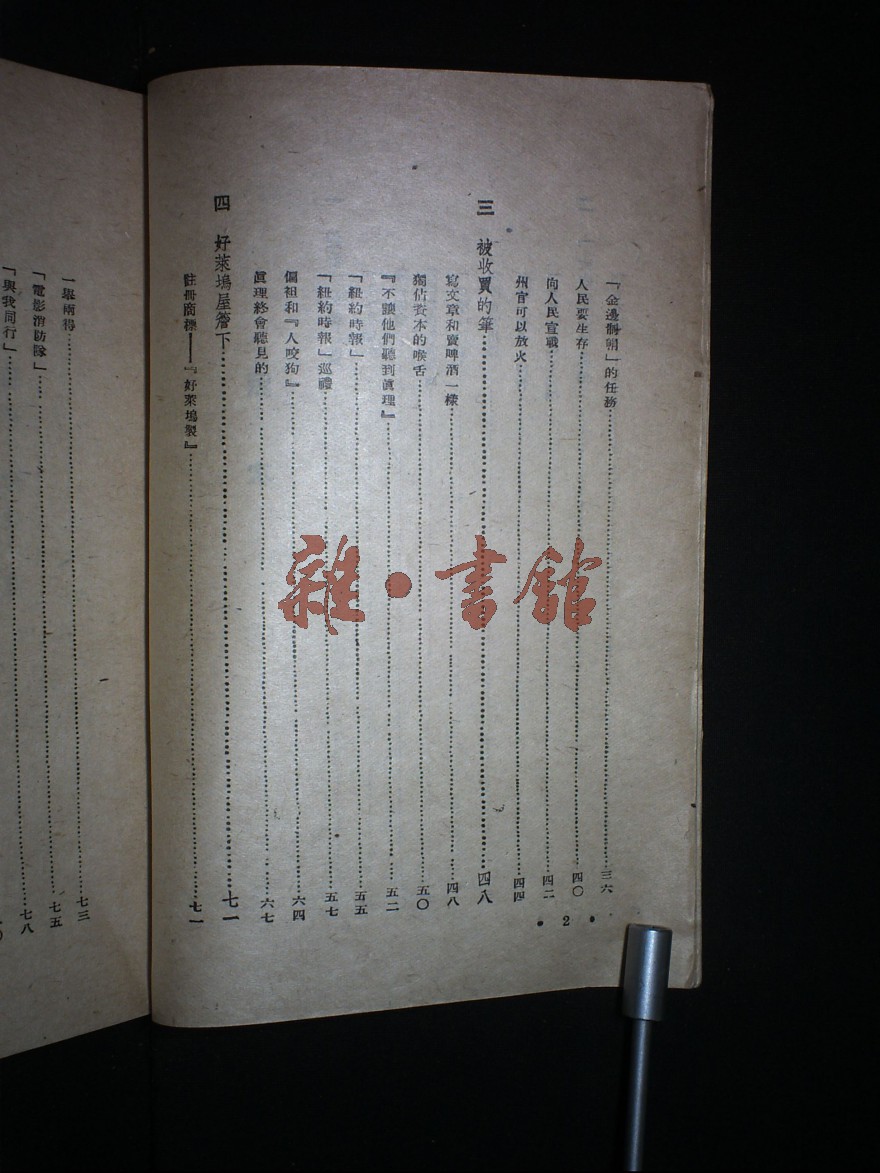 「金邊制帽」的任務……三六
人民要生存……四〇
向人民宣戰……四二
州官可以放火……四四
三 被收買的筆……四八
寫文章和賣啤酒一樣……四八
獨佔資本的喉舌……五〇
『不讓他們聽到眞理』……五二
「紐約時報」……五五
「紐約時報」巡禮……五七
偏袒和『人咬狗』……六四
眞理終會聽見的……六七
四 好萊塢屋簷下……七一
註冊商標——『好萊塢製』……七一
• 2 •
一舉兩得……七三
「電影消防隊」……七五
「與我同行」……七八
雜•書館